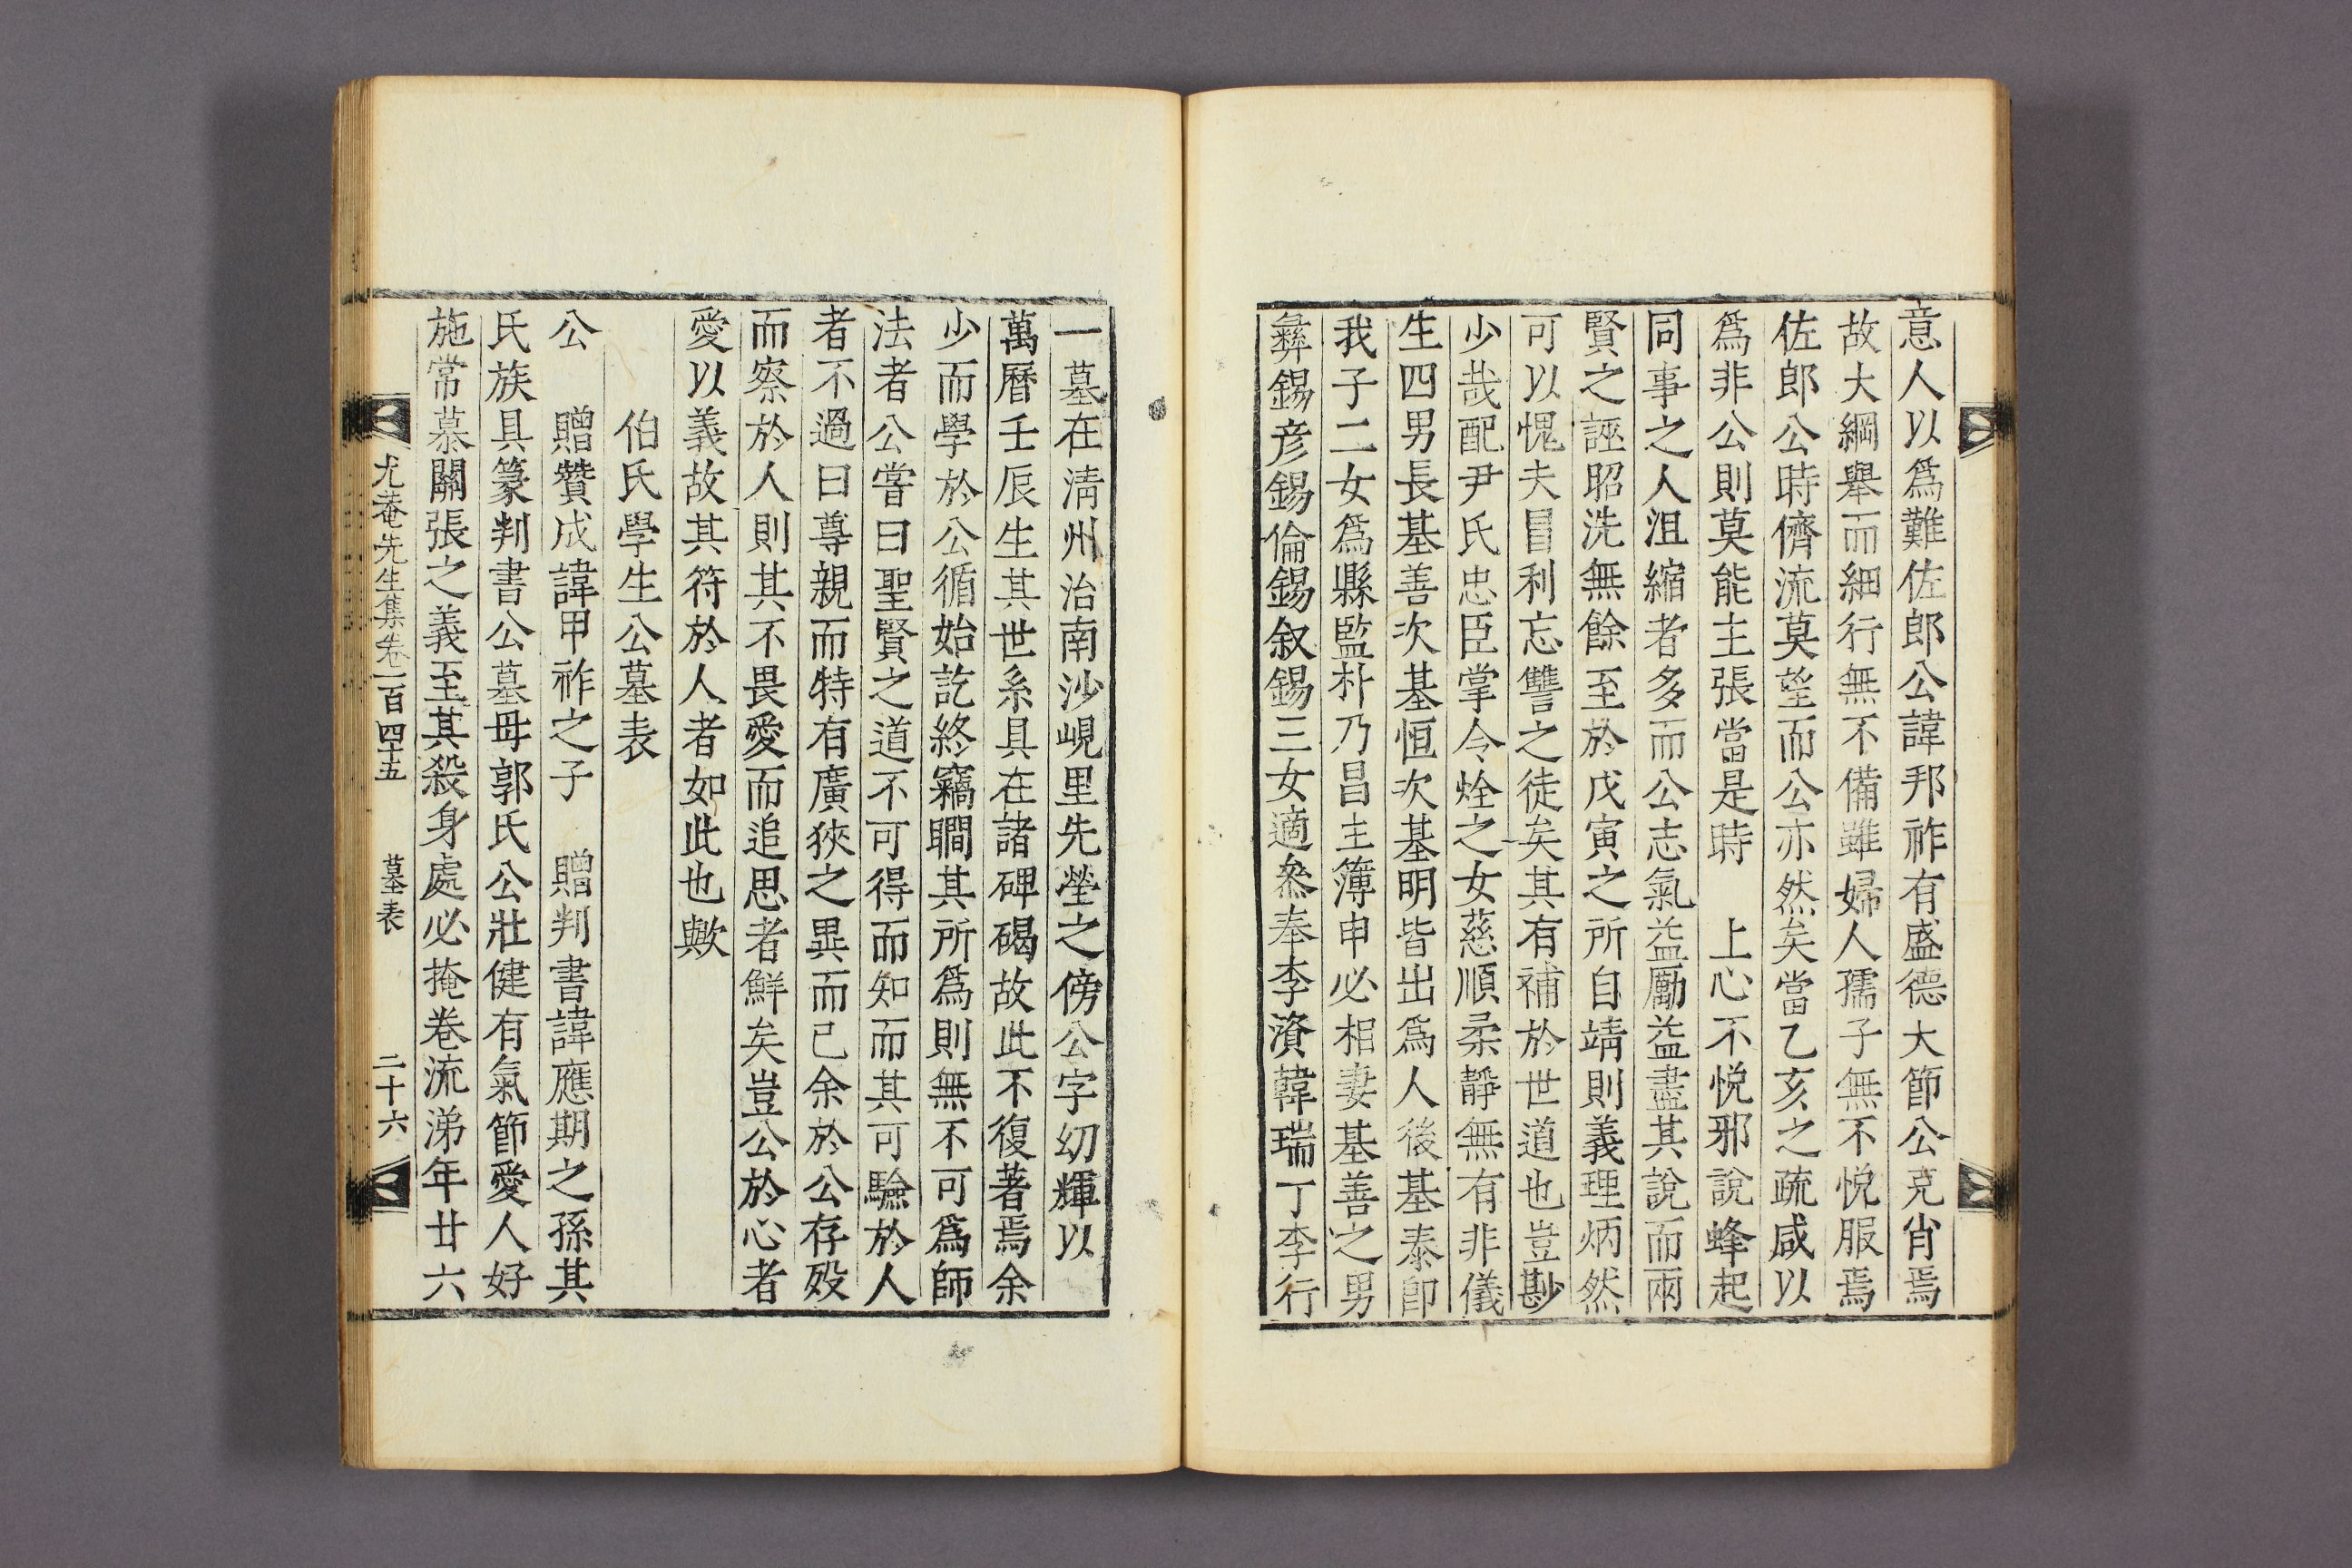 意人以爲難佐郎公諱邦祚有盛德大節公克肖焉
故大綱舉而細行無不備雖婦人孺子無不悅服焉
佐郎公時儕流莫望而公亦然矣當乙亥之疏咸以
爲非公則莫能主張當是時　上心不悅邪說蜂起
同事之人沮縮者多而公志氣益勵益盡其說而兩
賢之誣昭洗無餘至於戊寅之所自靖則義理炳然
可以愧夫冒利忘讐之徒矣其有補於世道也豈尠
少哉配尹氏忠臣掌令烇之女慈順柔靜無有非儀
生四男長基善次基恒次基明皆出爲人後基泰卽
我子二女爲縣監朴乃昌主簿申必相妻基善之男
彝錫彦錫倫錫叙錫三女適叅奉李濱韓瑞丁李行
一墓在淸州治南沙峴里先塋之傍公字幼輝以
萬曆壬辰生其世系具在諸碑碣故此不復著焉余
少而學於公循始訖終竊瞯其所爲則無不可爲師
法者公嘗曰聖賢之道不可得而知而其可驗於人
者不過曰尊親而特有廣狹之異而已余於公存歿
而察於人則其不畏愛而追思者鮮矣豈公於心者
愛以義故其符於人者如此也歟
伯氏學生公墓表
公　贈贊成諱甲祚之子　贈判書諱應期之孫其
氏族具篆判書公墓毋郭氏公壯健有氣節愛人好
施常慕關張之義至其殺身處必掩卷流涕年廿六
尤菴先生集卷一百四十五　墓表　二十六